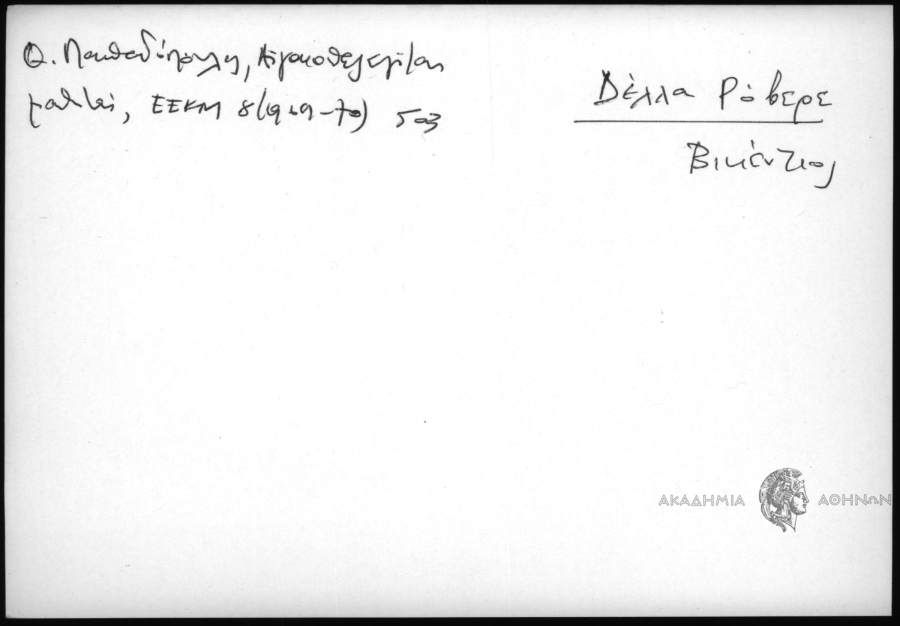 Θ. Παπαδόπουλλος, Αιγαιοπελαγίται
μαθηταί, ΕΕΚΜ 8(1969-70) 503
Δέλλα Ρόβερε
Βικέντιος
ΑΚΑΔΗΜΙΑ ΑΘΗΝΩΝ